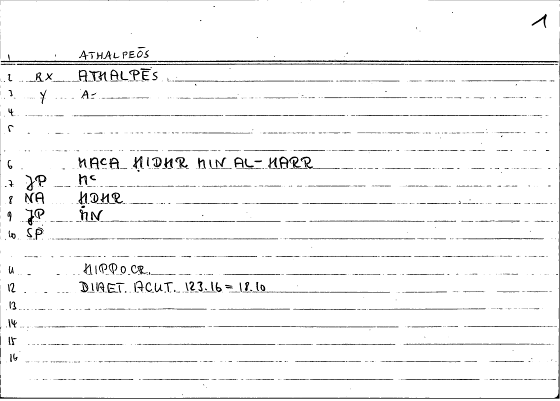 1
1 ATHALPEŌS
2 RX ATHALPĒS
3 Y A-
4
5
6 MAʿA ḤIDHR MIN AL-ḤARR
7 JP Mʿ
8 NA ḤDHR
9 JP MN
10 SP
11 HIPPOCR.
12 DIAET. ACUT. 123.16 = 18.10
13
14
15
16